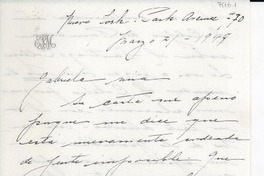 Nueva York. Park Avenue - 70
Marzo 21 - 1949
Gabriela mia
Su carta me apena
porque me dice que
esta nuevamente rodeada
de gente imposible que